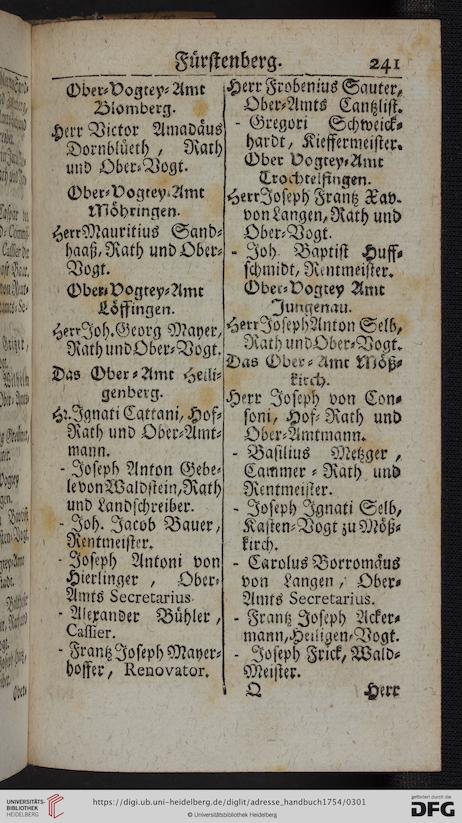 Fürstenberg. 241
Ober-Vogtey-Amt
Blomberg.
Herr Victor Amadäus
Dornblüeth, Rath
und Ober-Vogt.
Ober-Vogtey-Amt
Möhringen.
Herr Mauritius Sand-
haaß, Rath und Ober-
Vogt.
Ober-Vogtey-Amt
Löffingen.
Herr Joh. Georg Mayer,
Rath und Ober-Vogt.
Das Ober-Amt Heili-
genberg.
Hr. Ignati Cattani, Hof-
Rath und Ober-Amt-
mann.
- Joseph Anton Gebe-
le von Waldstein, Rath
und Landschreiber.
- Joh. Jacob Bauer,
Rentmeister.
- Joseph Antoni von
Hierlinger, Ober-
Amts Secretarius.
- Alexander Bühler,
Cassier.
- Frantz Joseph Mayer-
hoffer, Renovator.
Herr Frobenius Sauter,
Ober-Amts Cantzlist.
- Gregori Schweick-
hardt, Kieffermeister.
Ober Vogtey-Amt
Trochtelfingen.
Herr Joseph Frantz Xav.
von Langen, Rath und
Ober-Vogt.
- Joh. Baptist Huff-
schmidt, Rentmeister.
Ober-Vogtey Amt
Jungenau.
Herr Joseph Anton Selb,
Rath und Ober-Vogt.
Das Ober-Amt Möß-
kirch.
Herr Joseph von Con-
soni, Hof-Rath und
Ober-Amtmann.
- Basilius Metzger,
Cammer-Rath und
Rentmeister.
- Joseph Ignati Selb,
Kasten-Vogt zu Möß-
kirch.
- Carolus Borromäus
von Langen, Ober-
Amts Secretarius.
- Frantz Joseph Acker-
mann, Heiligen-Vogt.
- Joseph Frick, Wald-
Meister.
Q Herr
UNIVERSITÄTS-
BIBLIOTHEK
HEIDELBERG
https://digi.ub.uni-heidelberg.de/diglit/adresse_handbuch1754/0301
© Universitätsbibliothek Heidelberg
gefördert durch die
DFG